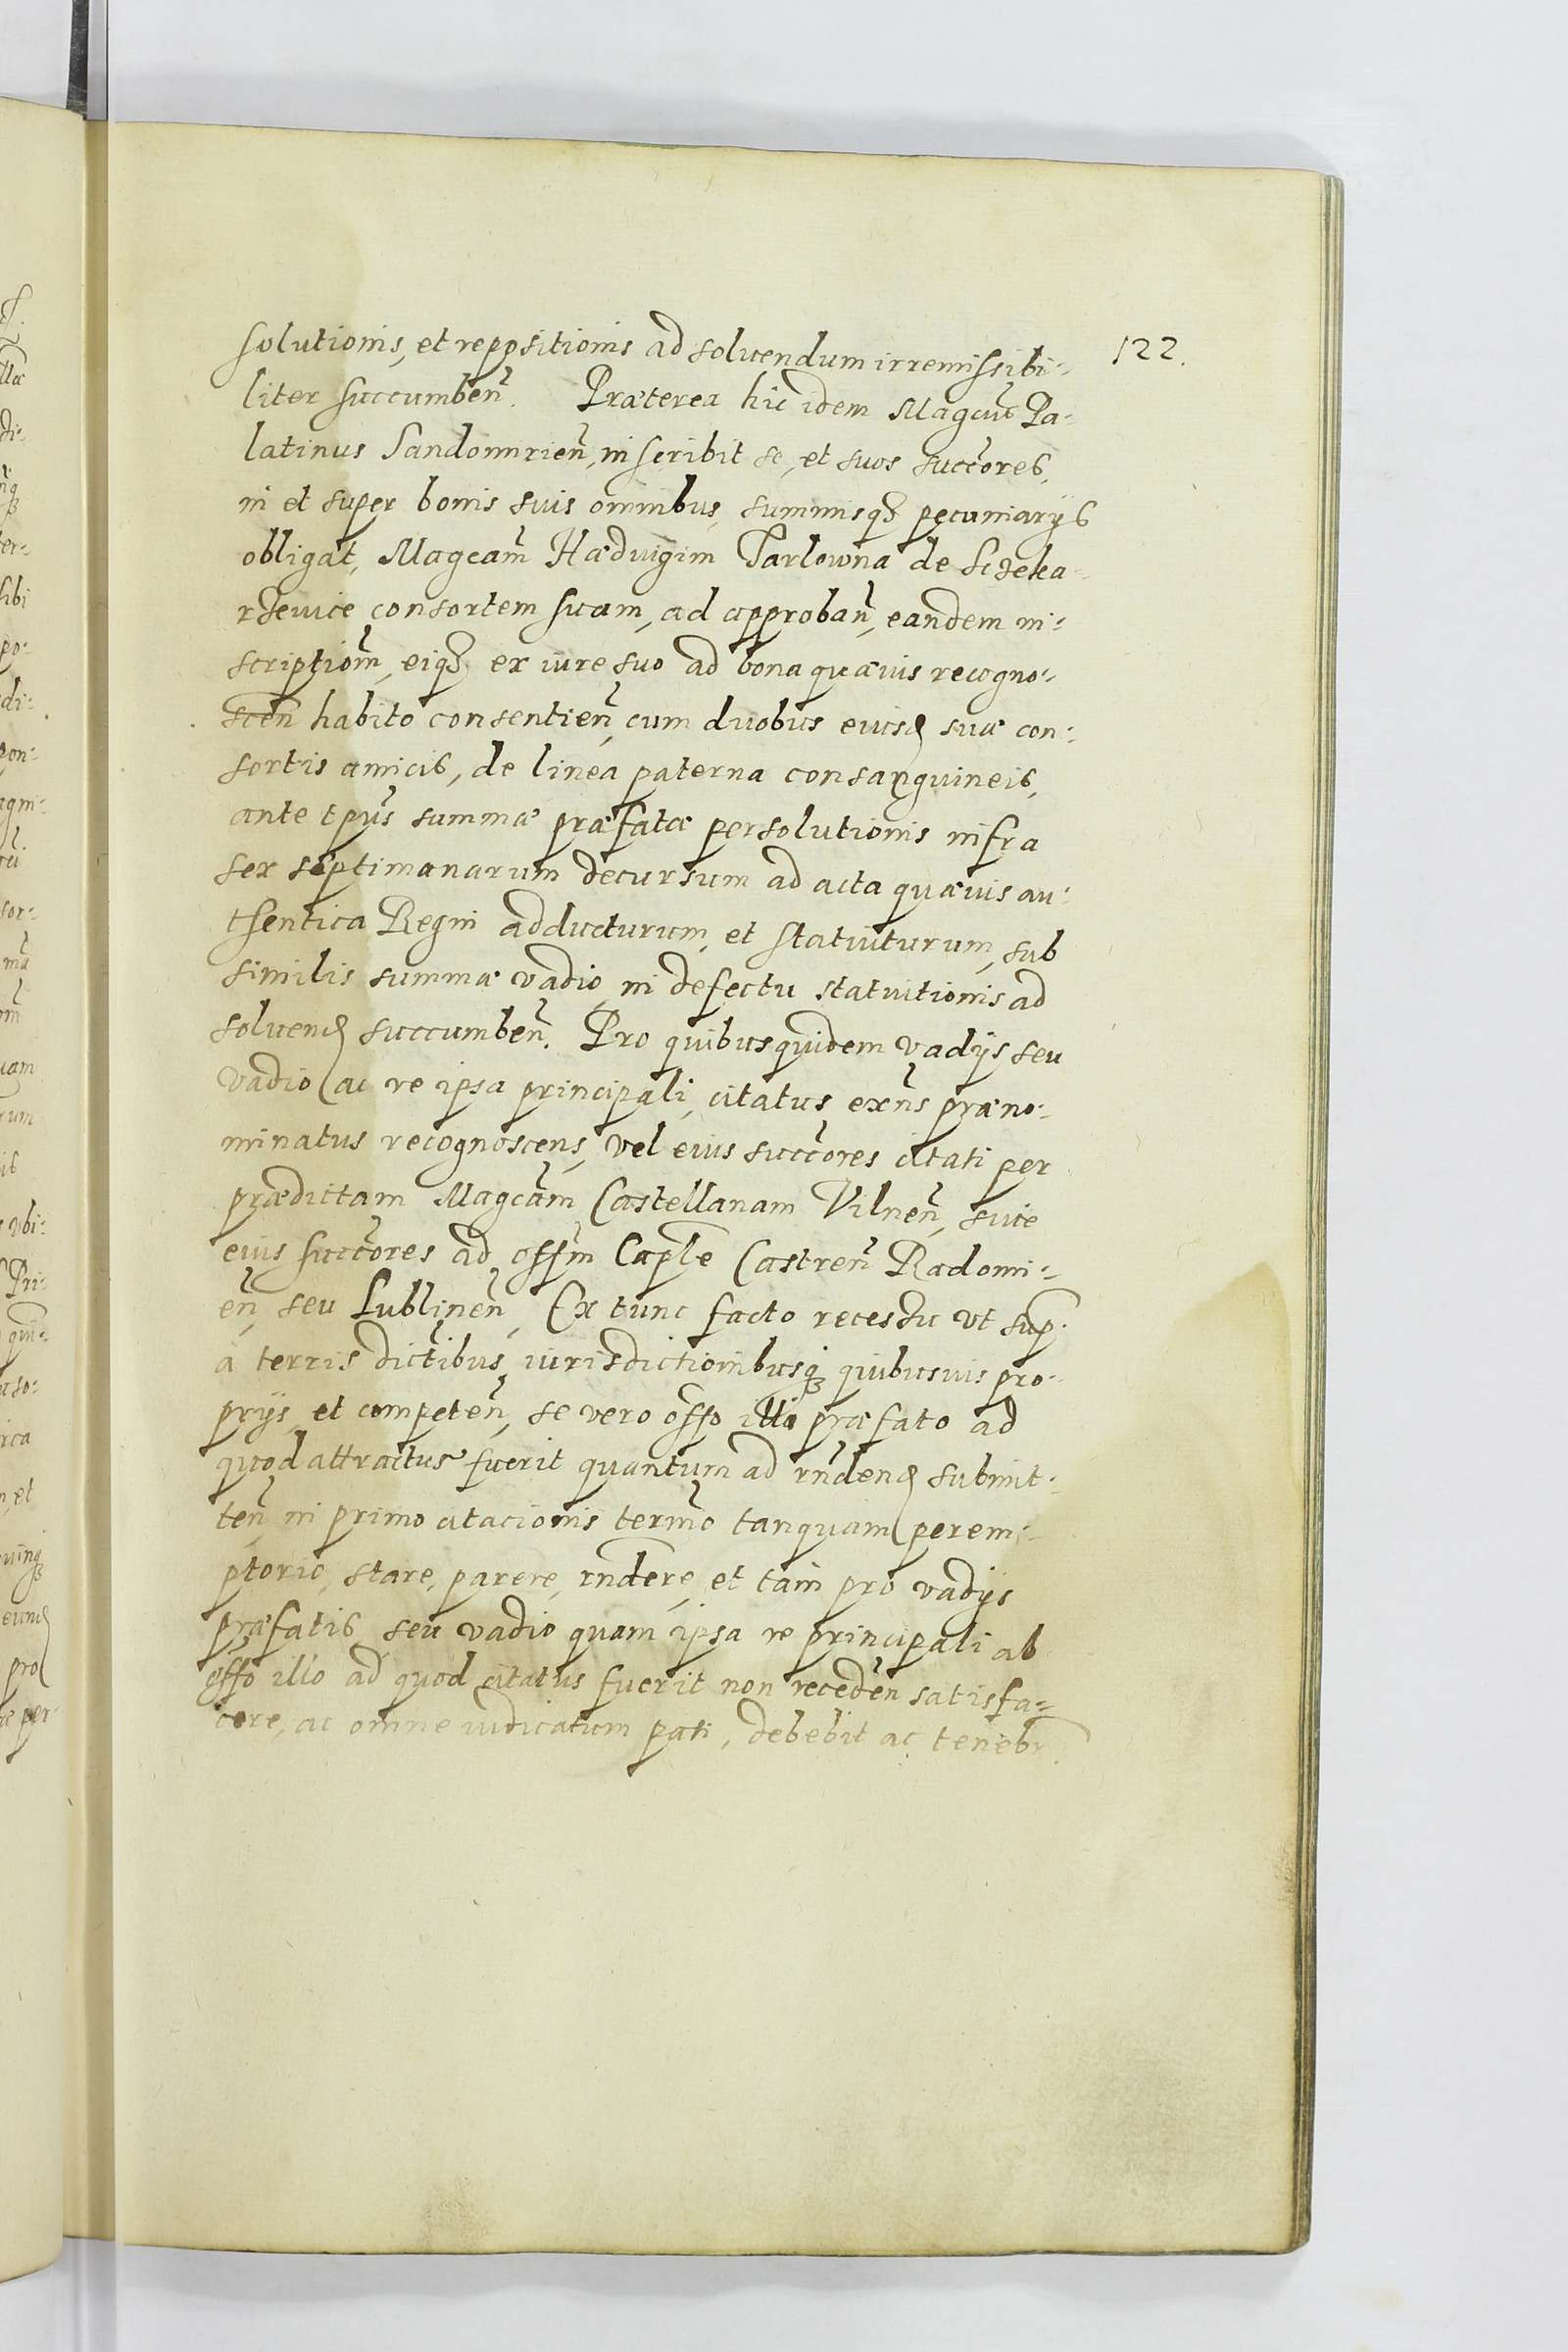 122.
solutionis, et repositionis ad soluendum irremissibi-
liter succumben̄. Præterea hic idem Magcūs Pa-
latinus Sandomirien̄, inscribit se, et suos succōres,
in et super bonis suis omnibus, summisqꝫ pecuniarijs
obligat, Magcam̄ Hæduigim Tarlowna de Sczeka-
rzeuice consortem suam, ad approban̄, eandem in-
scriptiom̄, eiqꝫ ex iure suo ad bona quæuis recogno-
scen̄ habito consentien̄, cum duobus eiusd suæ con-
sortis amicis, de linea paterna consanguineis,
ante tpūs summæ præfatæ persolutionis infra
sex septimanarum decursum ad acta quæuis au-
thentica Regni adducturum, et statuturum, sub
similis summæ vadio, in defectu statuitionis ad
soluend succumben̄. Pro quibusquidem vadijs seu
vadio ac re ipsa principali, citatus exn̄s præno-
minatus recognoscens, vel eius succōres citati per
prædictam Magcam̄ Castellanam Vilnen̄, siue
eius succōres ad offm̄ Caple Castren̄ Radomi-
en̄, seu Lublinen̄, Ex tunc facto recessu vt sup.
a terris dictībus, iurisdictionibusqꝫ quibusuis pro-
prijs, et competen̄, se vero offo illi præfato ad
quod attractus fuerit quantum ad rn̄dend submit-
ten̄, in primo citacionis termo tanquam perem-
ptorio, stare, parere, rndere, et tam pro vadijs
præfatis, seu vadio quam ipsa re principali ab
offo illo ad quod citatus fuerit non receden̄ satisfa-
cere, ac omne iudicatum pati, debebit ac tenebr.